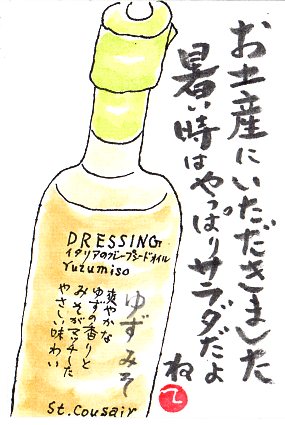 お土産にいただきました
暑い時はやっぱりサラダだよ
ね
て
DRESSING
イタリアのグレープシードオイル
Yuzumiso
ゆずみそ
爽やかな
ゆずの香りと
みそがマッチした
やさしい味わい
St.Cousair